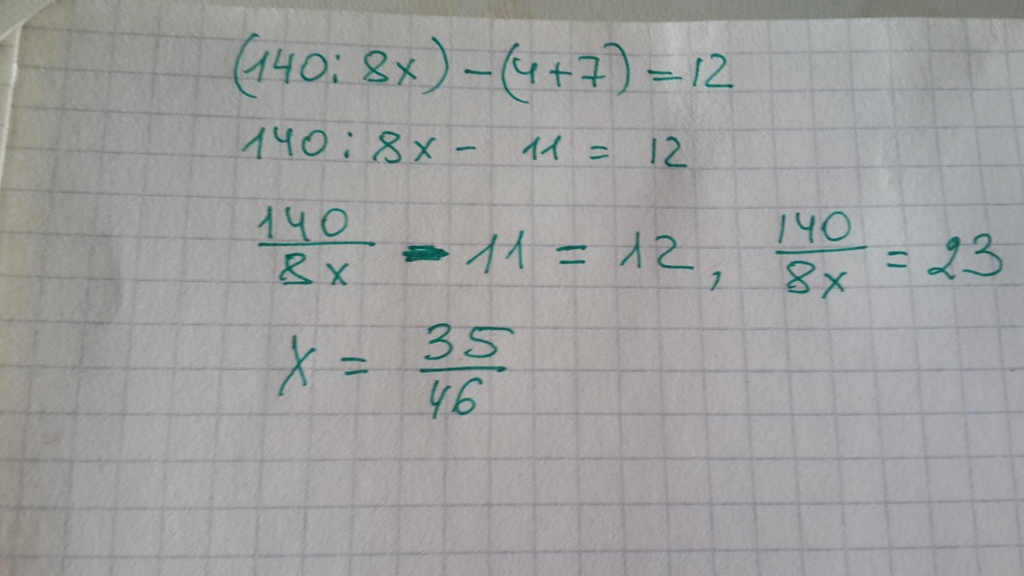 (140: 8x) - (4+7) = 12
140 : 8x - 11 = 12
140/8x - 11 = 12, 140/8x = 23
x = 35/46